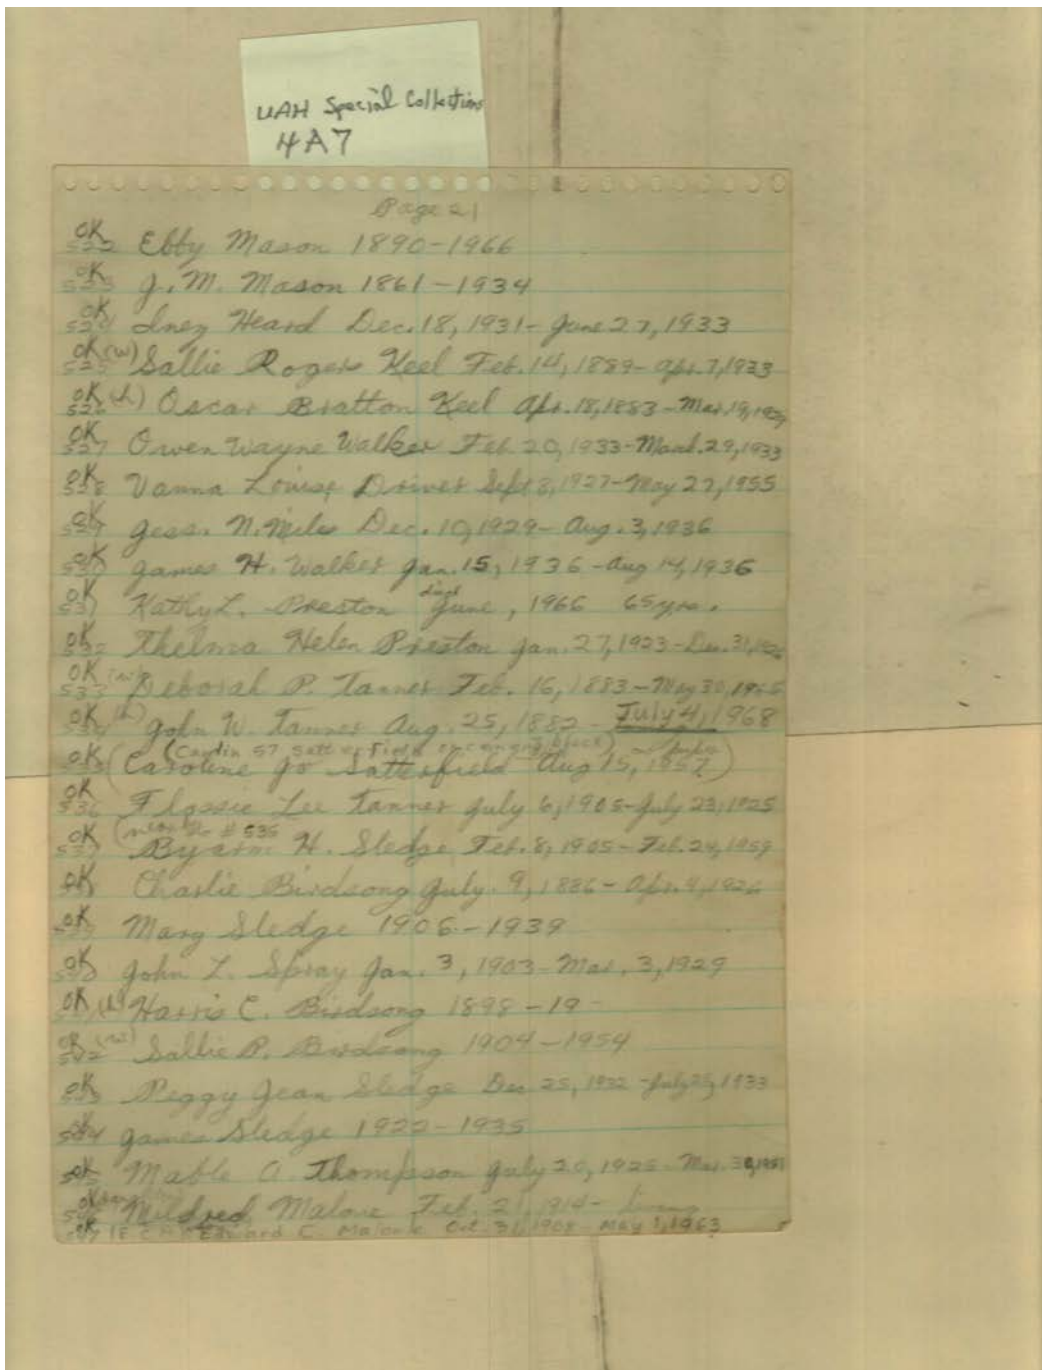 UAH Special Collections
4A7
Page 21
OK 522 Ebby Mason 1890-1966
OK 523 J. M. Mason 1861-1934
OK 524 Inez Heard Dec. 18, 1931- June 27, 1933
OK 525 (w) Sallie Rogers Keel Feb. 14, 1889- Apr. 7, 1933
OK 526 (h) Oscar Bratton Keel Apr. 18, 1883-Mar. 19,
OK 527 Owen Wayne Walker Feb. 20, 1933-March. 29, 1933
OK 528 Vanna Louise Driver Sept 8, 1927-May 27, 1955
OK 529 Jess. N. Miles Dec. 10, 1929- Aug. 3, 1936
OK 530 James H. Walker Jan. 15, 1936-Aug 14, 1936
OK 531 Kathy L. Preston died June, 1966 65 yrs.
OK 532 Thelma Helen Preston Jan. 27, 1923-Dec. 31,
OK 533 (w) Deborah P. Tanner Feb. 16, 1883-May 30,
OK 534 (h) John W. Tanner Aug. 25, 1882- July 4, 1968
(Cardin 57 Satterfield on block)
OK 535 (Caroline Jo Satterfield Aug 15, 1957)
OK 536 Flossie Lee Tanner July 6, 1905-July 23, 1925
(next to # 535
OK 537 Byarm H. Sledge Feb. 8, 1905-Feb. 24, 1959
OK 538 Charlie Birdsong July. 9, 1886- Apr. 4, 1926
OK 539 Mary Sledge 1906-1939
OK 540 John L. Spray Jan. 3, 1903-Mar. 3, 1929
OK 541 (h) Harris C. Birdsong 1898-19-
OK 542 (w) Sallie P. Birdsong 1904-1954
OK 543 Peggy Jean Sledge Dec 25, 1932-July 25, 1933
OK 544 James Sledge 1922-1935
OK 545 Mable A. Thompson July 20, 1925- Mar. 30,
OK 546 Mildred Malone Feb. 21, 1914- living
OK 547 Edward C. Malone Oct. 31, 1908- May 1, 1963